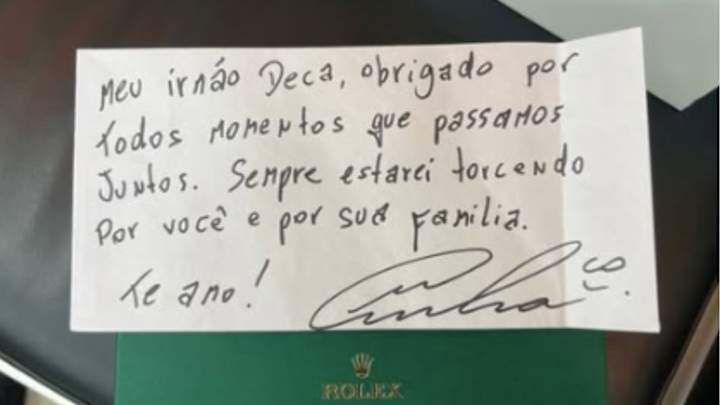 Meu irmão Deca, obrigado por
todos momentos que passamos
juntos. Sempre estarei torcendo
por você e por sua família.
Te amo!
ROLEX